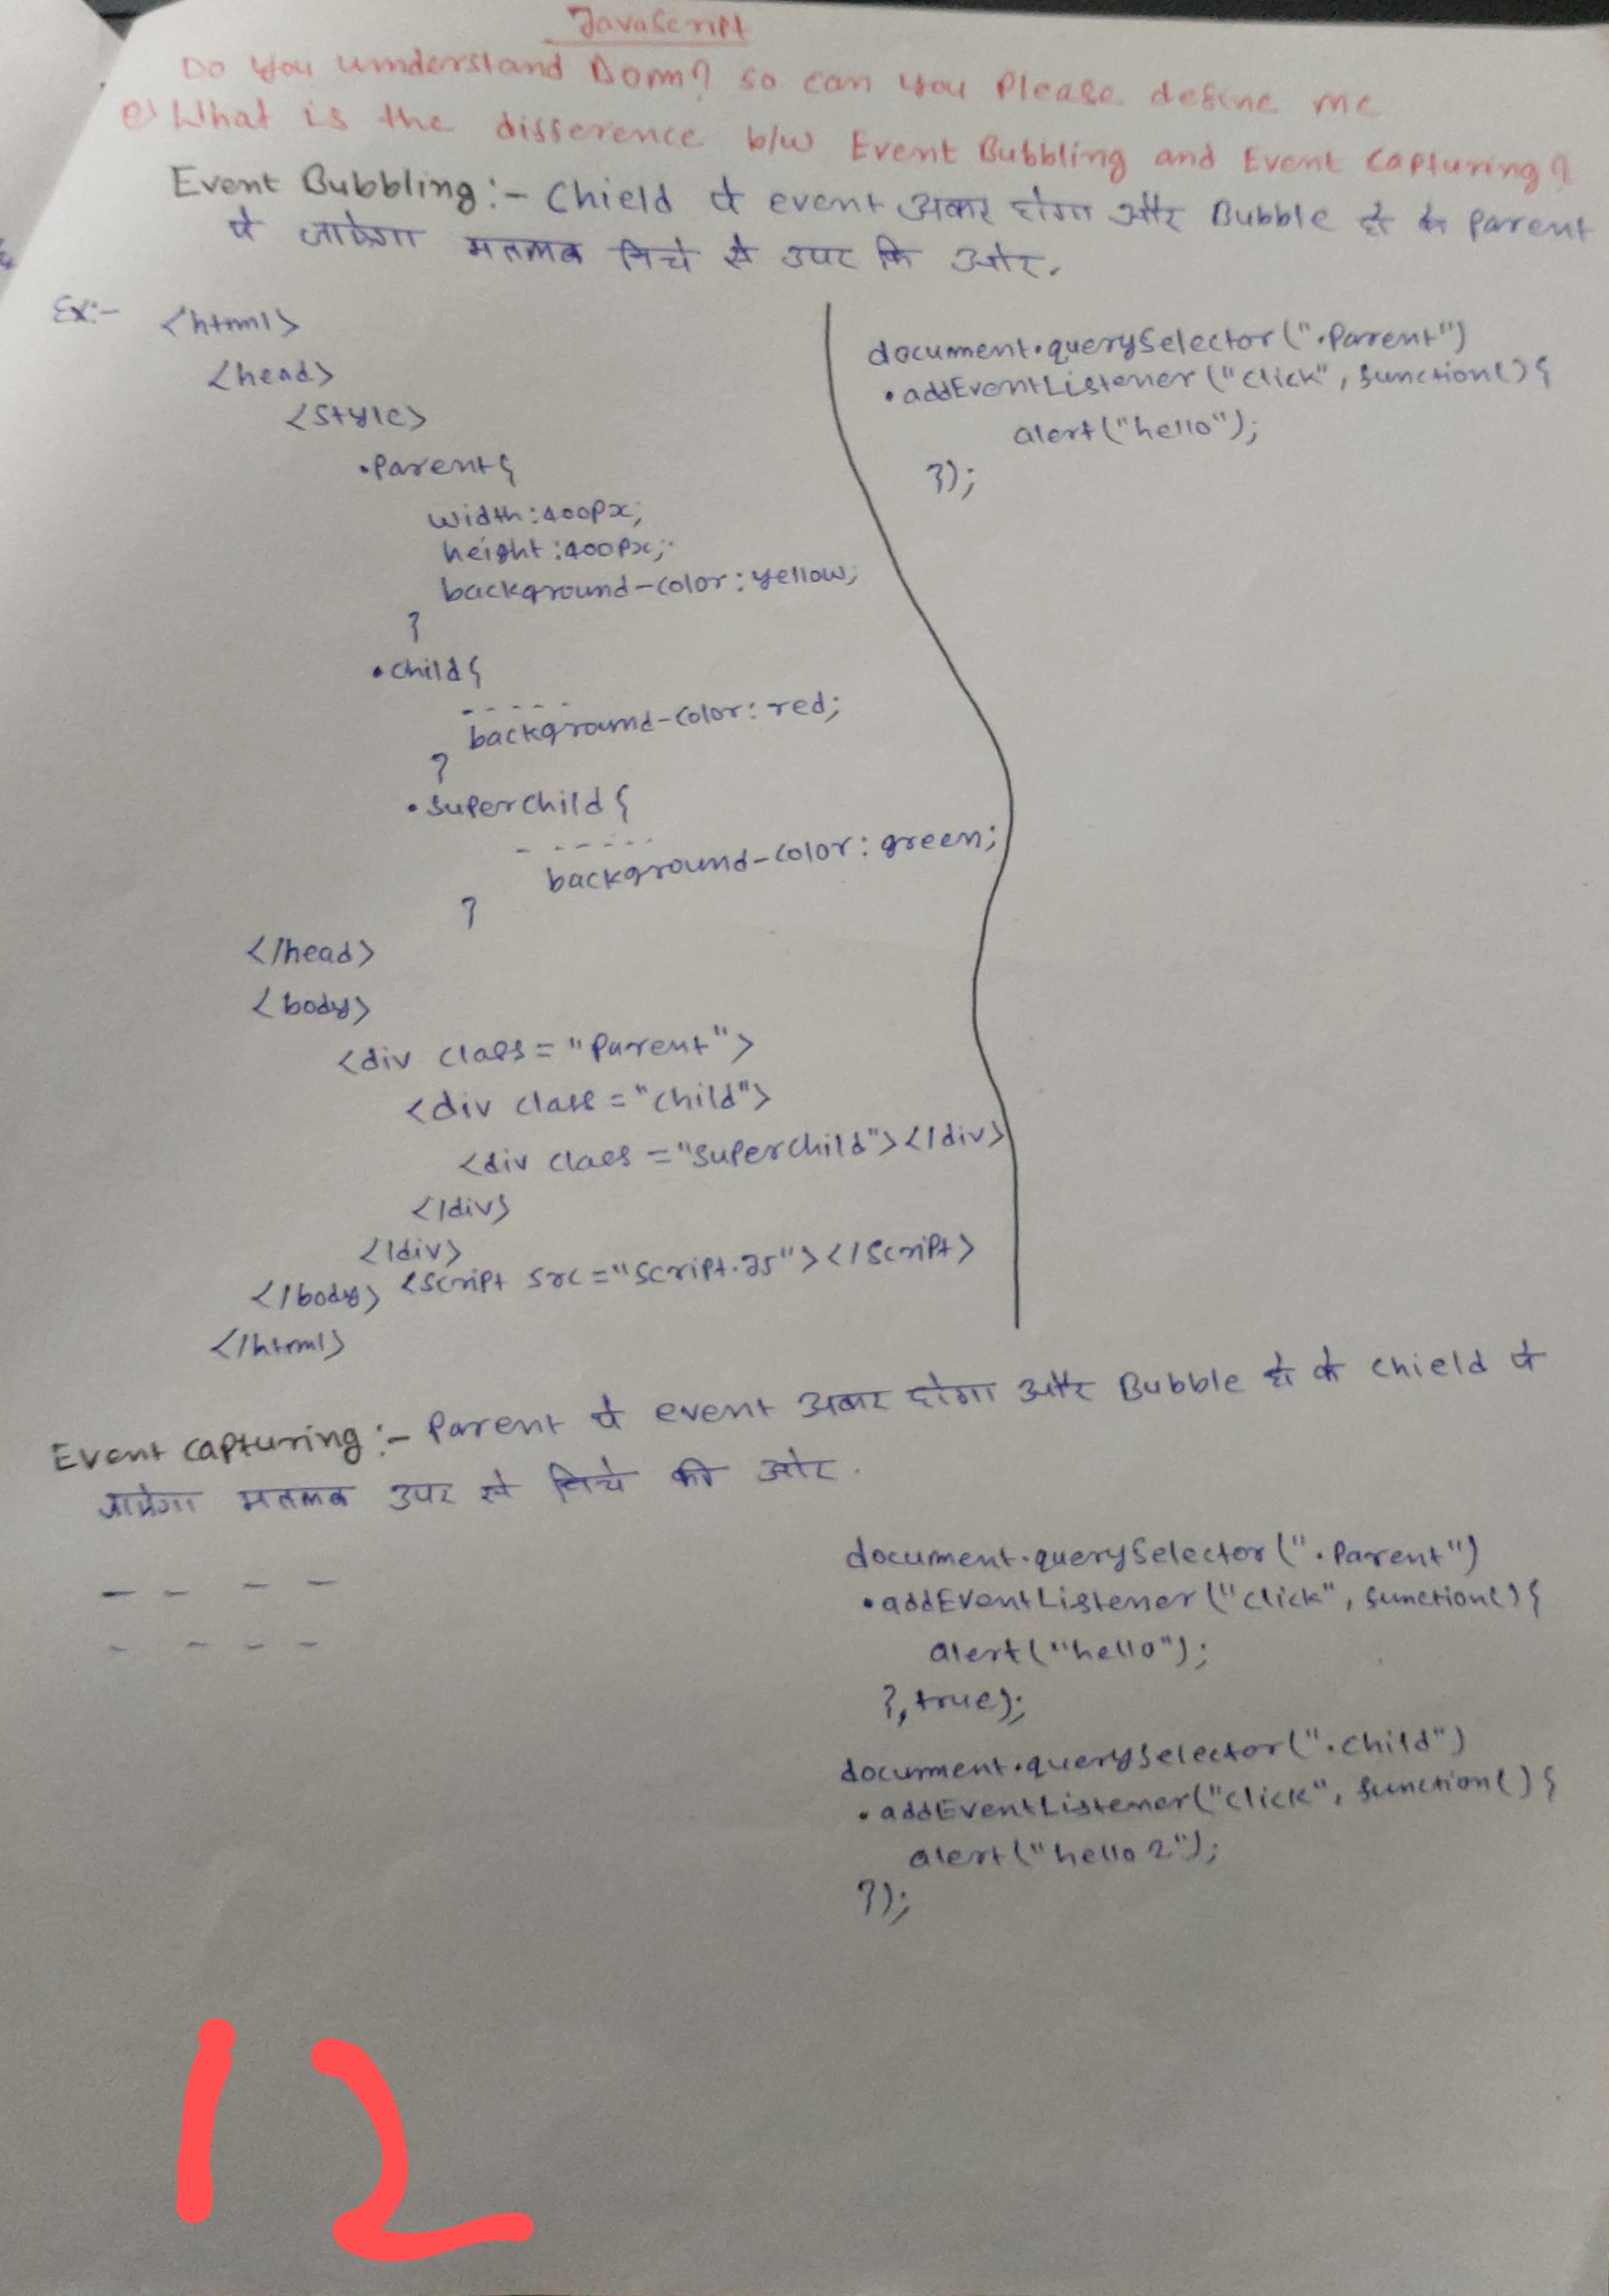 JavaScript
Do you understand Dom? so can you Please define me
e) What is the difference b/w Event Bubbling and Event Capturing?
Event Bubbling :- Chield पे event अकर होगा और Bubble हो के parent
पे जायेगा मतलब निचे से उपर कि ओर.
Ex:-
<html>
<head>
<style>
.Parent{
width:400px;
height:400px;
background-color:yellow;
}
.child{
- - - - -
background-color: red;
}
.superchild{
- - - - - -
background-color: green;
}
</head>
<body>
<div class="Parent">
<div class="child">
<div class="superchild"></div>
</div>
</div>
</body> <script src="script.js"></script>
</html>
document.querySelector(".Parent")
.addEventListener("click", function(){
alert("hello");
});
Event capturing :- Parent पे event अकर होगा और Bubble हो के chield पे
जायेगा मतलब उपर से निचे की ओर.
- - - -
- - - -
document.querySelector(".Parent")
.addEventListener("click", function(){
alert("hello");
},true);
document.querySelector(".child")
.addEventListener("click", function(){
alert("hello 2");
});
12